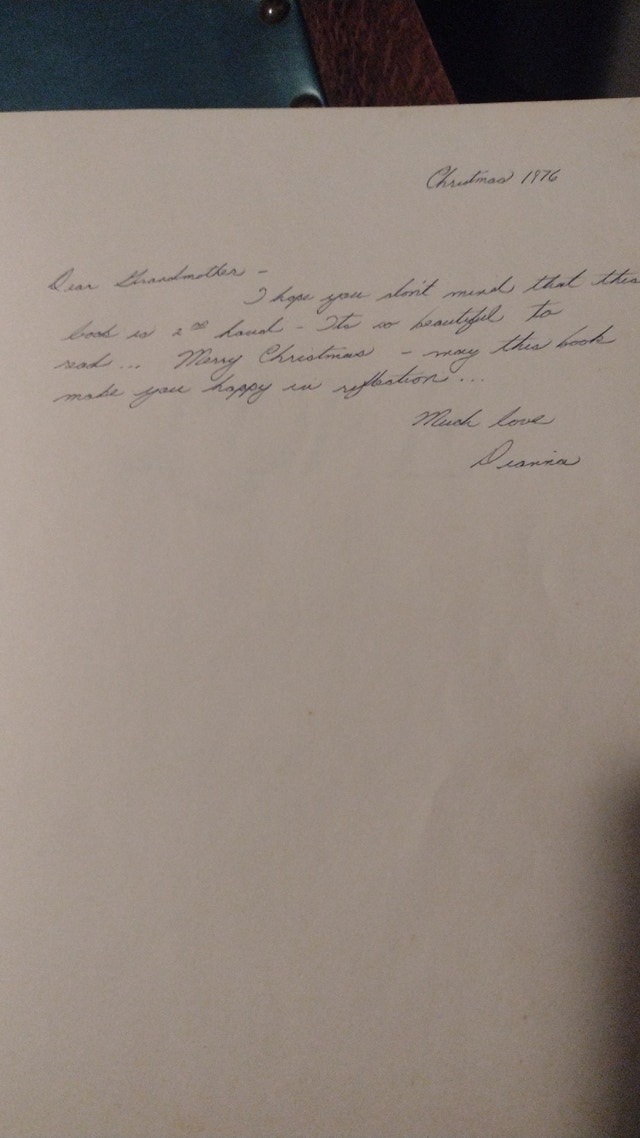 Christmas 1976
Dear Grandmother -
I hope you don't mind that this
book is 2nd hand - Its so beautiful to
read ... Merry Christmas - may this book
make you happy in reflection ...
Much love
Dianna